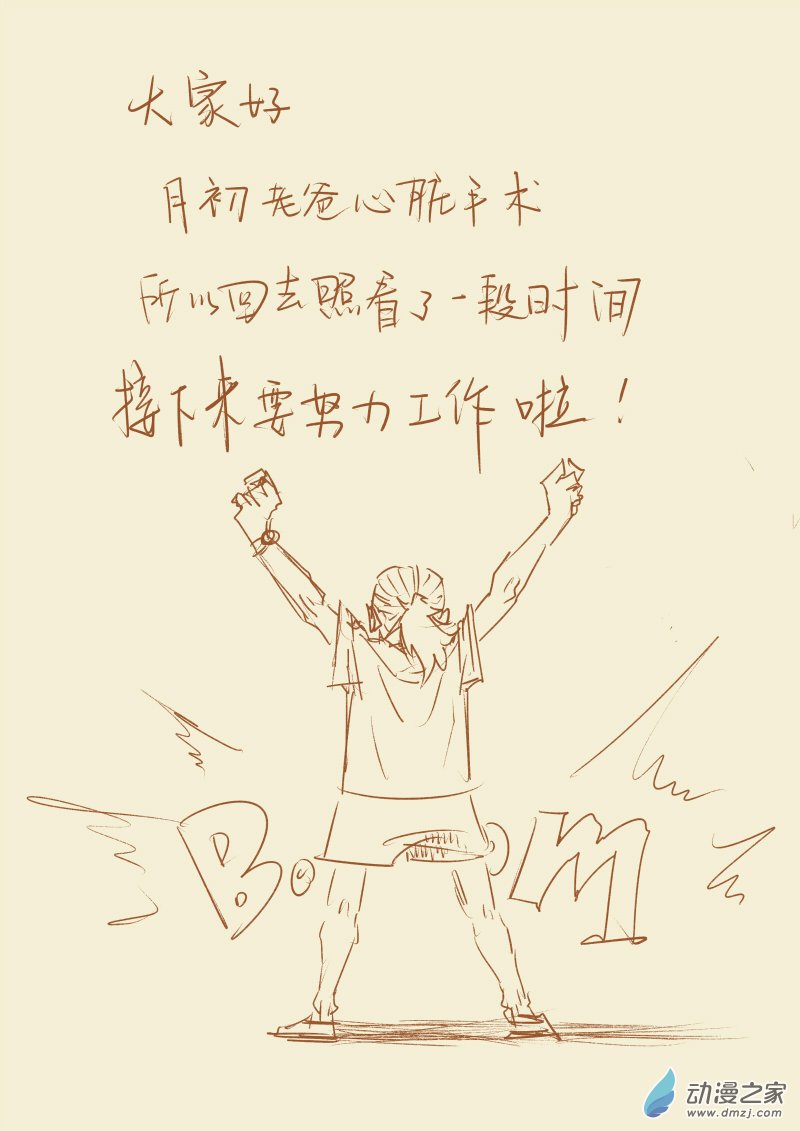 大家好
月初老爸心脏手术
所以回去照看了一段时间
接下来要努力工作啦！
BOOM
动漫之家
www.dmzj.com